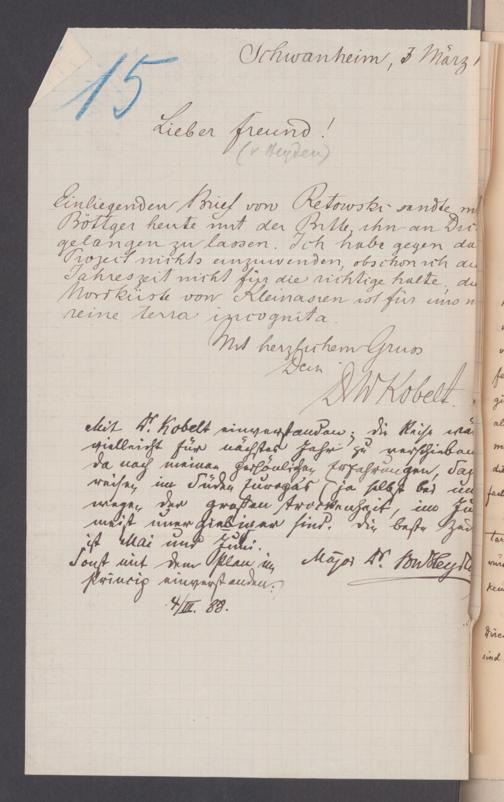 15
Schwanheim, 3 März
Lieber Freund!
(v Heyden)
Einliegenden Brief von Retowski sandte
Böttger heute mit der Bitte, ihn an Dich
gelangen zu lassen. Ich habe gegen da
Project nichts einzuwenden, obschon ich die
Jahreszeit nicht für die richtige halte, die
Nordküste von Kleinasien ist für uns
reine terra incognita.
Mit herzlichem Gruss
Dein
Dr W Kobelt.
Mit Dr. Kobelt einverstanden; die Reise wä
vielleicht für nächstes Jahr zu verschieben
da nach meinen persönlichen Erfahrungen,
reisen im Süden Europas (ja selbst bei un
wegen der großen Trockenheit, im Ju
meist unergiebiger sind. Die beste Zei
ist Mai und Juni.
Sonst mit dem Plan im
Major Dr. v Heyde
Princip einverstanden.
4/III. 88.